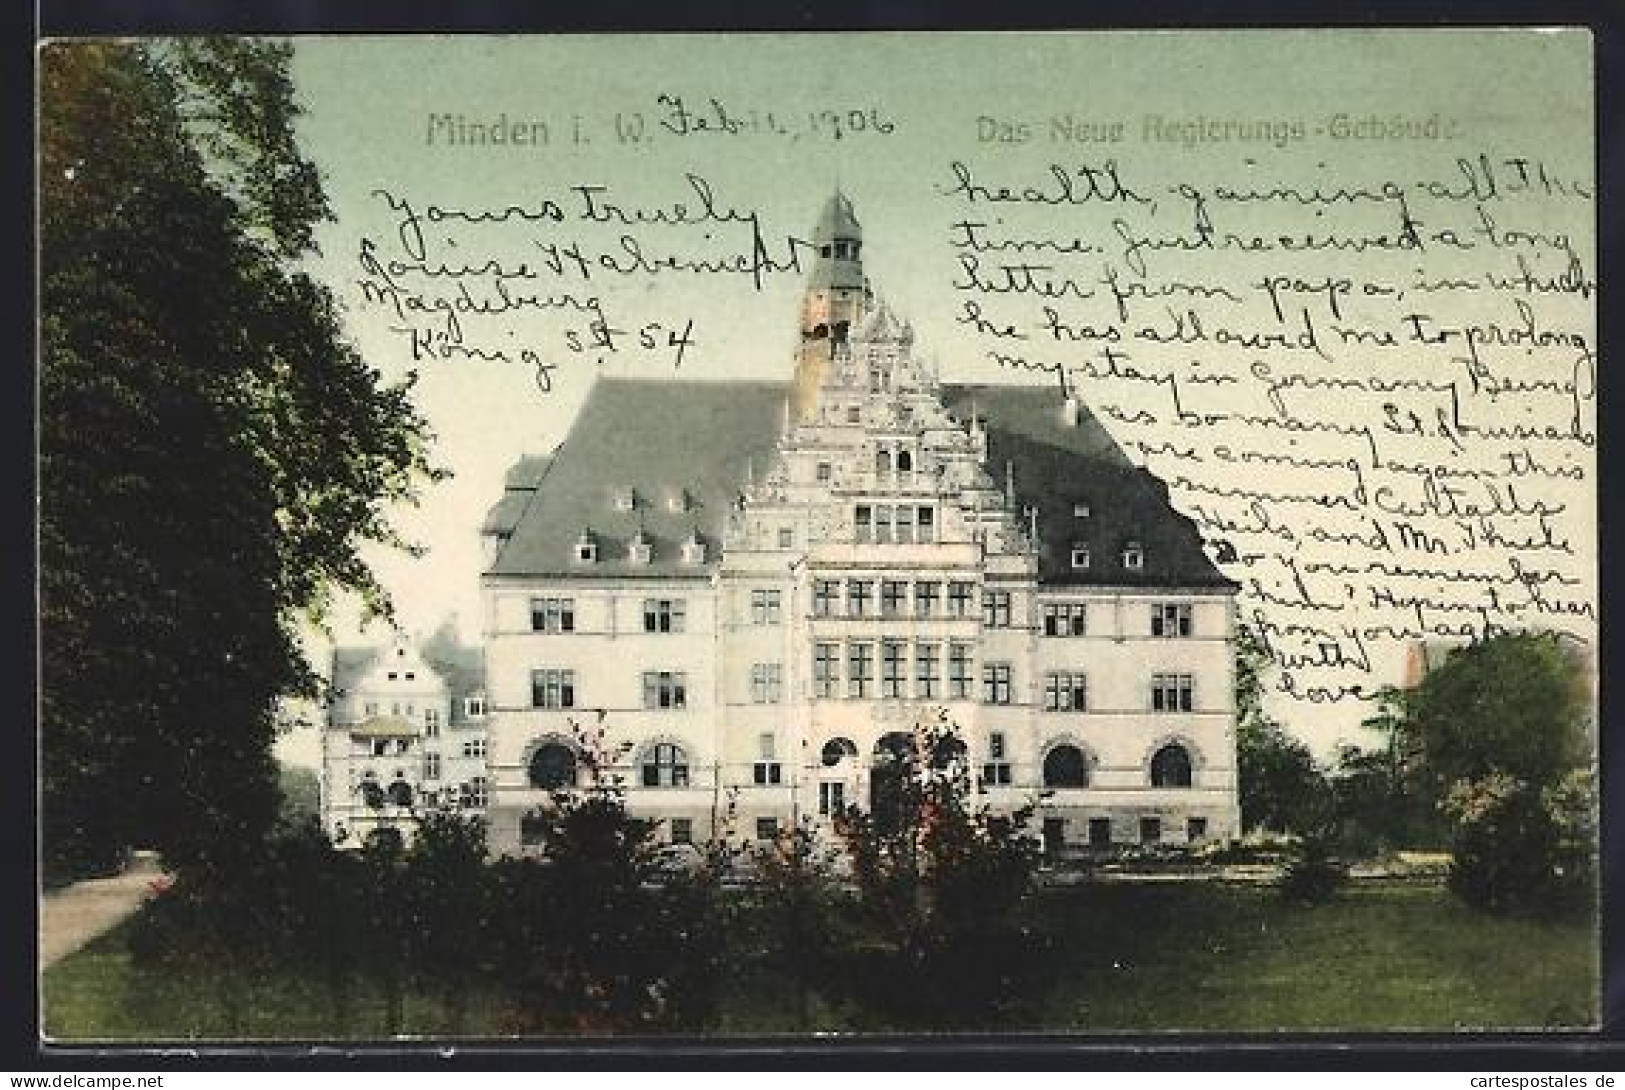 Minden i. W. Feb. 11, 1906
Das Neue Regierungs-Gebäude.
health, gaining all the
time. Just received a long
letter from papa, in which
he has allowed me to prolong
my stay in Germany Being
as so many St. Louisians
are coming again this
summer,
Heils, and Mr. Thiele
Do you remember
him? Hoping to hear
from you again
with
love
Yours truely
Louise Habenicht
Magdeburg
König St 54
cartespostales de